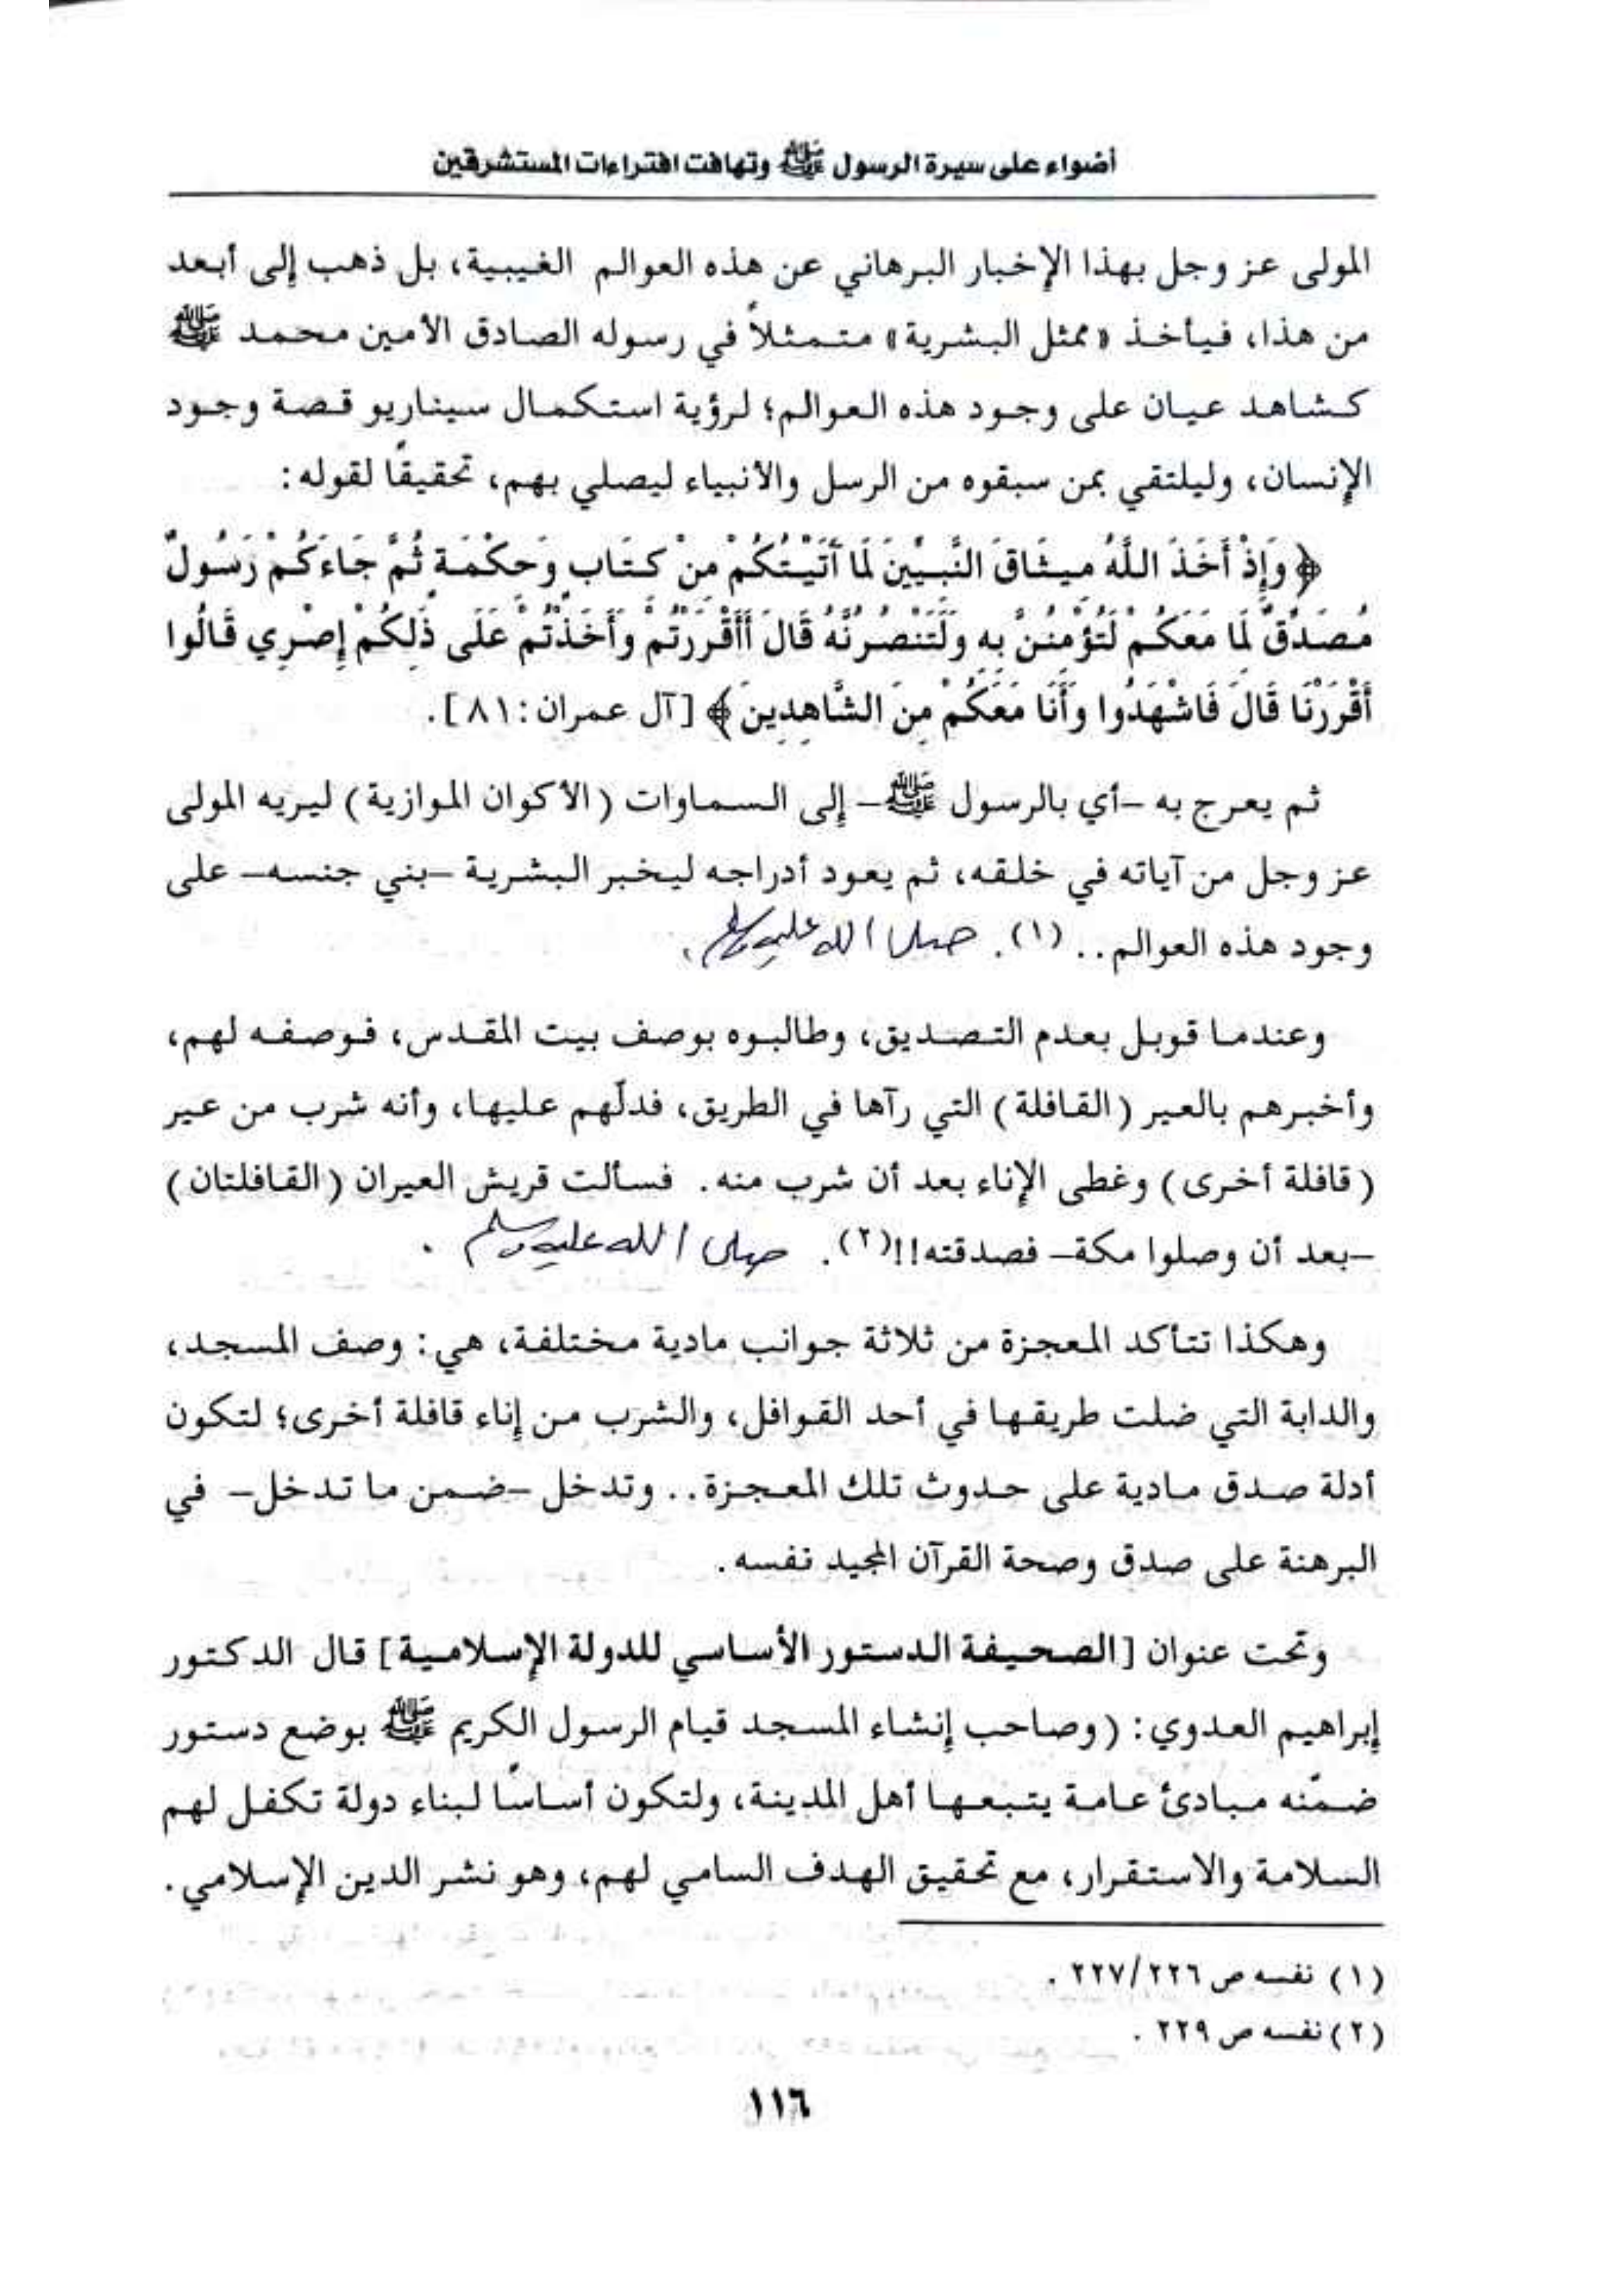 أضواء على سيرة الرسول ﷺ وتهافت افتراءات المستشرقين
المولى عز وجل بهذا الإخبار البرهاني عن هذه العوالم الغيبية، بل ذهب إلى أبعد
من هذا، فيأخذ «ممثل البشرية» متمثلاً في رسوله الصادق الأمين محمد ﷺ
كشاهد عيان على وجود هذه العوالم؛ لرؤية استكمال سيناريو قصة وجود
الإنسان، وليلتقي بمن سبقوه من الرسل والأنبياء ليصلي بهم، تحقيقًا لقوله:
﴿وَإِذْ أَخَذَ اللَّهُ مِيثَاقَ النَّبِيِّينَ لَمَا آتَيْتُكُمْ مِنْ كِتَابٍ وَحِكْمَةٍ ثُمَّ جَاءَكُمْ رَسُولٌ
مُصَدِّقٌ لِمَا مَعَكُمْ لَتُؤْمِنُنَّ بِهِ وَلَتَنْصُرُنَّهُ قَالَ أَأَقْرَرْتُمْ وَأَخَذْتُمْ عَلَى ذَلِكُمْ إِصْرِي قَالُوا
أَقْرَرْنَا قَالَ فَاشْهَدُوا وَأَنَا مَعَكُمْ مِنَ الشَّاهِدِينَ﴾ [آل عمران: ٨١].
ثم يعرج به –أي بالرسول ﷺ– إلى السماوات (الأكوان الموازية) ليريه المولى
عز وجل من آياته في خلقه، ثم يعود أدراجه ليخبر البشرية –بني جنسه– على
وجود هذه العوالم.. (١). صلى الله عليه وسلم.
وعندما قوبل بعدم التصديق، وطالبوه بوصف بيت المقدس، فوصفه لهم،
وأخبرهم بالعير (القافلة) التي رآها في الطريق، فدلّهم عليها، وأنه شرب من عير
(قافلة أخرى) وغطى الإناء بعد أن شرب منه. فسألت قريش العيران (القافلتان)
–بعد أن وصلوا مكة– فصدقته!!(٢). صلى الله عليه وسلم.
وهكذا تتأكد المعجزة من ثلاثة جوانب مادية مختلفة، هي: وصف المسجد،
والدابة التي ضلت طريقها في أحد القوافل، والشرب من إناء قافلة أخرى؛ لتكون
أدلة صدق مادية على حدوث تلك المعجزة.. وتدخل –ضمن ما تدخل– في
البرهنة على صدق وصحة القرآن المجيد نفسه.
وتحت عنوان [الصحيفة الدستور الأساسي للدولة الإسلامية] قال الدكتور
إبراهيم العدوي: (وصاحب إنشاء المسجد قيام الرسول الكريم ﷺ بوضع دستور
ضمّنه مبادئ عامة يتبعها أهل المدينة، ولتكون أساسًا لبناء دولة تكفل لهم
السلامة والاستقرار، مع تحقيق الهدف السامي لهم، وهو نشر الدين الإسلامي.
(١) نفسه ص ٢٢٧/٢٢٦.
(٢) نفسه ص ٢٢٩.
١١٦